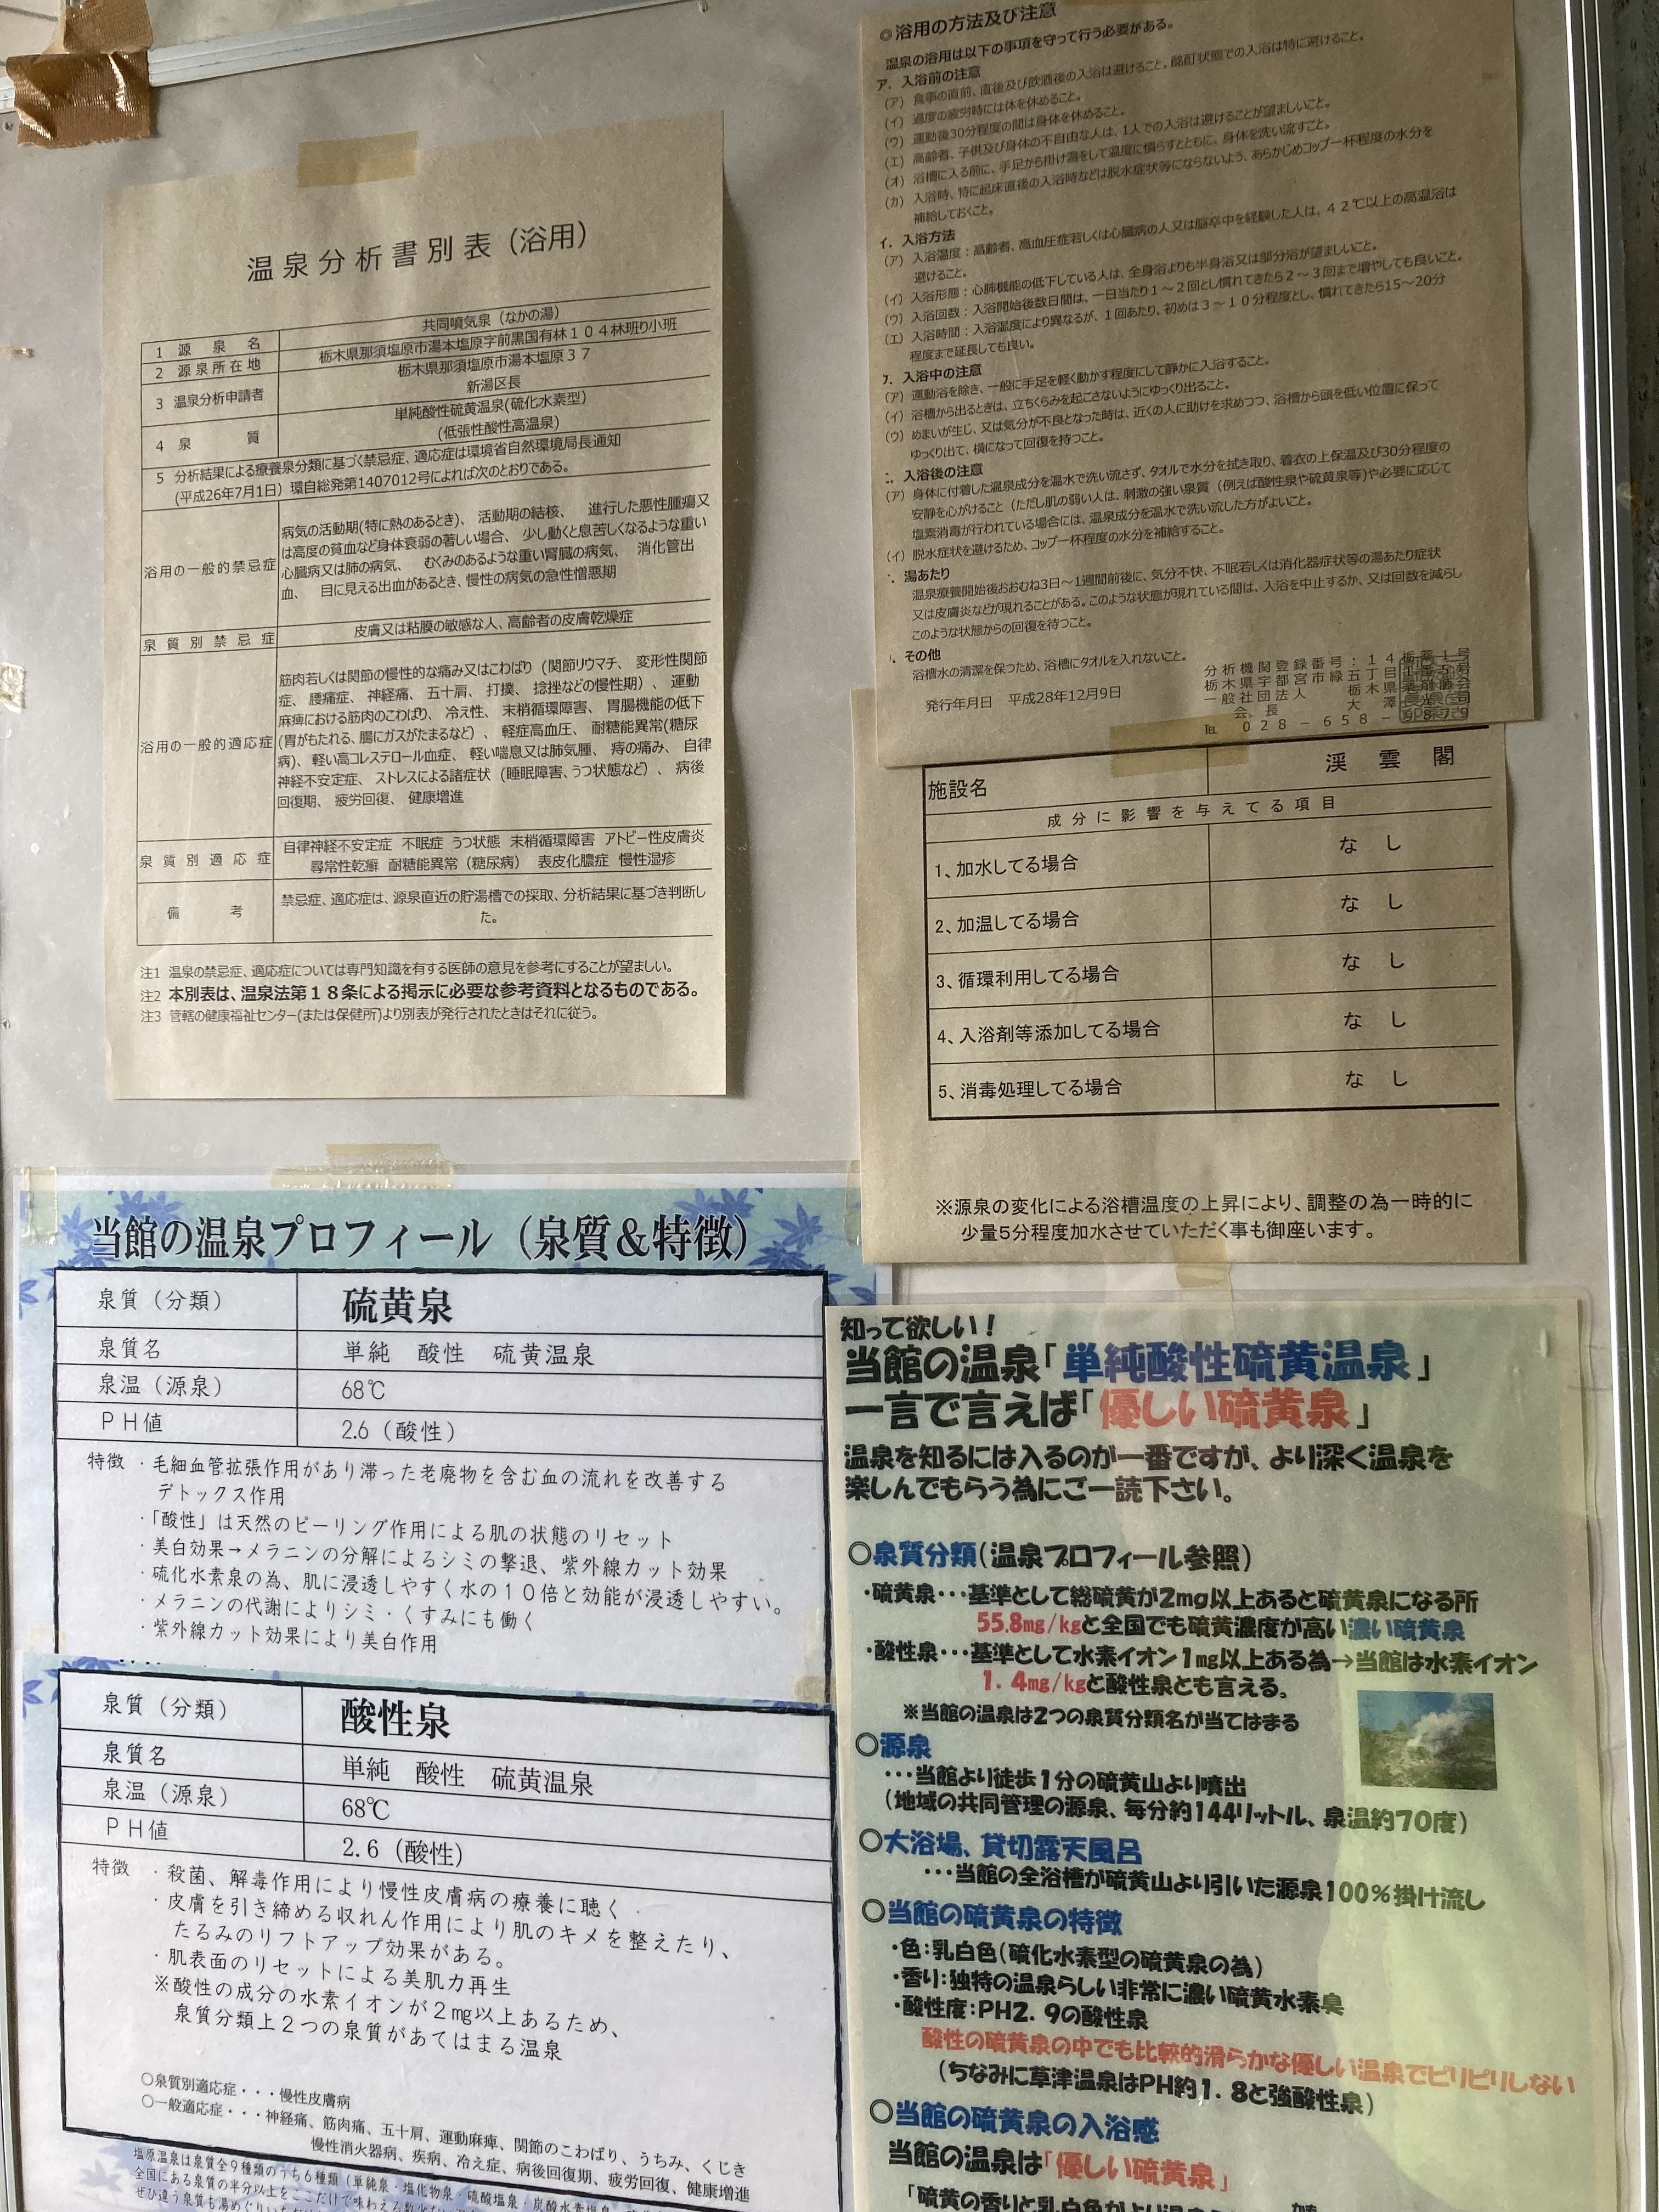 温泉分析書別表（浴用）
1 源泉名 共同噴気泉（なかの湯）
2 源泉所在地 栃木県那須塩原市湯本塩原字前黒国有林１０４林班り小班
3 温泉分析申請者 栃木県那須塩原市湯本塩原３７
新湯区長
4 泉質 単純酸性硫黄温泉(硫化水素型)
(低張性酸性高温泉)
5 分析結果による療養泉分類に基づく禁忌症、適応症は環境省自然環境局長通知
(平成26年7月1日）環自総発第1407012号によれば次のとおりである。
浴用の一般的禁忌症 病気の活動期(特に熱のあるとき)、活動期の結核、 進行した悪性腫瘍又
は高度の貧血など身体衰弱の著しい場合、 少し動くと息苦しくなるような重い
心臓病又は肺の病気、 むくみのあるような重い腎臓の病気、 消化管出
血、 目に見える出血があるとき、慢性の病気の急性憎悪期
泉質別禁忌症 皮膚又は粘膜の敏感な人、高齢者の皮膚乾燥症
浴用の一般的適応症 筋肉若しくは関節の慢性的な痛み又はこわばり（関節リウマチ、 変形性関節
症、 腰痛症、 神経痛、 五十肩、 打撲、 捻挫などの慢性期）、 運動
麻痺における筋肉のこわばり、 冷え性、 末梢循環障害、 胃腸機能の低下
(胃がもたれる、腸にガスがたまるなど）、 軽症高血圧、 耐糖能異常(糖尿
病)、 軽い高コレステロール血症、 軽い喘息又は肺気腫、 痔の痛み、 自律
神経不安定症、 ストレスによる諸症状（睡眠障害、うつ状態など）、 病後
回復期、 疲労回復、 健康増進
泉質別適応症 自律神経不安定症 不眠症 うつ状態 末梢循環障害 アトピー性皮膚炎
尋常性乾癬 耐糖能異常（糖尿病） 表皮化膿症 慢性湿疹
備考 禁忌症、適応症は、源泉直近の貯湯槽での採取、分析結果に基づき判断し
た。
注1 温泉の禁忌症、適応症については専門知識を有する医師の意見を参考にすることが望ましい。
注2 本別表は、温泉法第１８条による掲示に必要な参考資料となるものである。
注3 管轄の健康福祉センター(または保健所)より別表が発行されたときはそれに従う。
◎浴用の方法及び注意
温泉の浴用は以下の事項を守って行う必要がある。
ア. 入浴前の注意
（ア） 食事の直前、直後及び飲酒後の入浴は避けること。酩酊状態での入浴は特に避けること。
（イ） 過度の疲労時には体を休めること。
（ウ） 運動後30分程度の間は身体を休めること。
（エ） 高齢者、子供及び身体の不自由な人は、1人での入浴は避けることが望ましいこと。
（オ） 浴槽に入る前に、手足から掛け湯をして温度に慣らすとともに、身体を洗い流すこと。
（カ） 入浴時、特に起床直後の入浴時などは脱水症状等にならないよう、あらかじめコップ一杯程度の水分を
補給しておくこと。
イ. 入浴方法
（ア） 入浴温度：高齢者、高血圧症若しくは心臓病の人又は脳卒中を経験した人は、４２℃以上の高温浴は
避けること。
（イ） 入浴形態：心肺機能の低下している人は、全身浴よりも半身浴又は部分浴が望ましいこと。
（ウ） 入浴回数：入浴開始後数日間は、一日当たり１～２回とし慣れてきたら２～３回まで増やしても良いこと。
（エ） 入浴時間：入浴温度により異なるが、１回あたり、初めは３～１０分程度とし、慣れてきたら15～20分
程度まで延長しても良い。
ウ. 入浴中の注意
（ア） 運動浴を除き、一般に手足を軽く動かす程度にして静かに入浴すること。
（イ） 浴槽から出るときは、立ちくらみを起こさないようにゆっくり出ること。
（ウ） めまいが生じ、又は気分が不良となった時は、近くの人に助けを求めつつ、浴槽から頭を低い位置に保って
ゆっくり出て、横になって回復を待つこと。
入浴後の注意
（ア） 身体に付着した温泉成分を温水で洗い流さず、タオルで水分を拭き取り、着衣の上保温及び30分程度の
安静を心がけること（ただし肌の弱い人は、刺激の強い泉質（例えば酸性泉や硫黄泉等)や必要に応じて
塩素消毒が行われている場合には、温泉成分を温水で洗い流した方がよいこと。
（イ） 脱水症状を避けるため、コップ一杯程度の水分を補給すること。
湯あたり
温泉療養開始後おおむね3日～1週間前後に、気分不快、不眠若しくは消化器症状等の湯あたり症状
又は皮膚炎などが現れることがある。このような状態が現れている間は、入浴を中止するか、又は回数を減らし
このような状態からの回復を待つこと。
その他
浴槽水の清潔を保つため、浴槽にタオルを入れないこと。
発行年月日 平成28年12月9日
分析機関登録番号：１４栃薬１号
栃木県宇都宮市緑五丁目
一般社団法人 栃木県
会長 大澤
℡ ０２８－６５８－９８７９
施設名 渓雲閣
成分に影響を与えてる項目
1、加水してる場合 なし
2、加温してる場合 なし
3、循環利用してる場合 なし
4、入浴剤等添加してる場合 なし
5、消毒処理してる場合 なし
※源泉の変化による浴槽温度の上昇により、調整の為一時的に
少量5分程度加水させていただく事も御座います。
当館の温泉プロフィール（泉質＆特徴）
泉質（分類） 硫黄泉
泉質名 単純 酸性 硫黄温泉
泉温（源泉） 68℃
ＰＨ値 2.6（酸性）
特徴 ・毛細血管拡張作用があり滞った老廃物を含む血の流れを改善する
デトックス作用
・「酸性」は天然のピーリング作用による肌の状態のリセット
・美白効果→メラニンの分解によるシミの撃退、紫外線カット効果
・硫化水素泉の為、肌に浸透しやすく水の１０倍と効能が浸透しやすい。
・メラニンの代謝によりシミ・くすみにも働く
・紫外線カット効果により美白作用
泉質（分類） 酸性泉
泉質名 単純 酸性 硫黄温泉
泉温（源泉） 68℃
ＰＨ値 2.6（酸性）
特徴 ・殺菌、解毒作用により慢性皮膚病の療養に聴く
・皮膚を引き締める収れん作用により肌のキメを整えたり、
たるみのリフトアップ効果がある。
・肌表面のリセットによる美肌力再生
※酸性の成分の水素イオンが２㎎以上あるため、
泉質分類上２つの泉質があてはまる温泉
○泉質別適応症・・・慢性皮膚病
○一般適応症・・・神経痛、筋肉痛、五十肩、運動麻痺、関節のこわばり、うちみ、くじき
慢性消火器病、疾病、冷え症、病後回復期、疲労回復、健康増進
塩原温泉は泉質全９種類のうち６種類（単純泉・塩化物泉・硫酸塩泉・炭酸水素塩泉
全国にある泉質の半分以上をここだけで味わえる
ぜひ違う泉質も湯めぐり
知って欲しい！
当館の温泉「単純酸性硫黄温泉」
一言で言えば「優しい硫黄泉」
温泉を知るには入るのが一番ですが、より深く温泉を
楽しんでもらう為にご一読下さい。
○泉質分類（温泉プロフィール参照）
・硫黄泉・・・基準として総硫黄が2mg以上あると硫黄泉になる所
55.8mg/kgと全国でも硫黄濃度が高い濃い硫黄泉
・酸性泉・・・基準として水素イオン1㎎以上ある為→当館は水素イオン
1.4mg/kgと酸性泉とも言える。
※当館の温泉は2つの泉質分類名が当てはまる
○源泉
・・・当館より徒歩1分の硫黄山より噴出
（地域の共同管理の源泉、毎分約144リットル、泉温約70度）
○大浴場、貸切露天風呂
・・・当館の全浴槽が硫黄山より引いた源泉100％掛け流し
○当館の硫黄泉の特徴
・色：乳白色（硫化水素型の硫黄泉の為）
・香り：独特の温泉らしい非常に濃い硫黄水素臭
・酸性度：PH2.9の酸性泉
酸性の硫黄泉の中でも比較的滑らかな優しい温泉でピリピリしない
（ちなみに草津温泉はPH約1.8と強酸性泉）
○当館の硫黄泉の入浴感
当館の温泉は「優しい硫黄泉」
「硫黄の香りと乳白色がより温泉